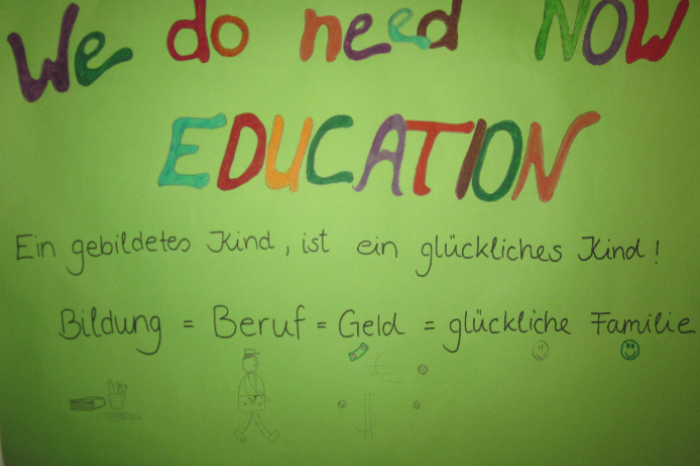 We do need NOW
EDUCATION
Ein gebildetes Kind, ist ein glückliches Kind!
Bildung = Beruf = Geld = glückliche Familie
€
$